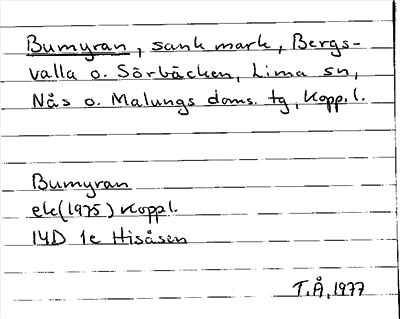 Bumyran, sank mark, Bergs-
valla o. Sörbäcken, Lima sn,
Nås o. Malungs doms. tg, Kopp.l.
Bumyran
ek (1975) Koppl.
14D 1e Hisåsen
T.Å, 1977